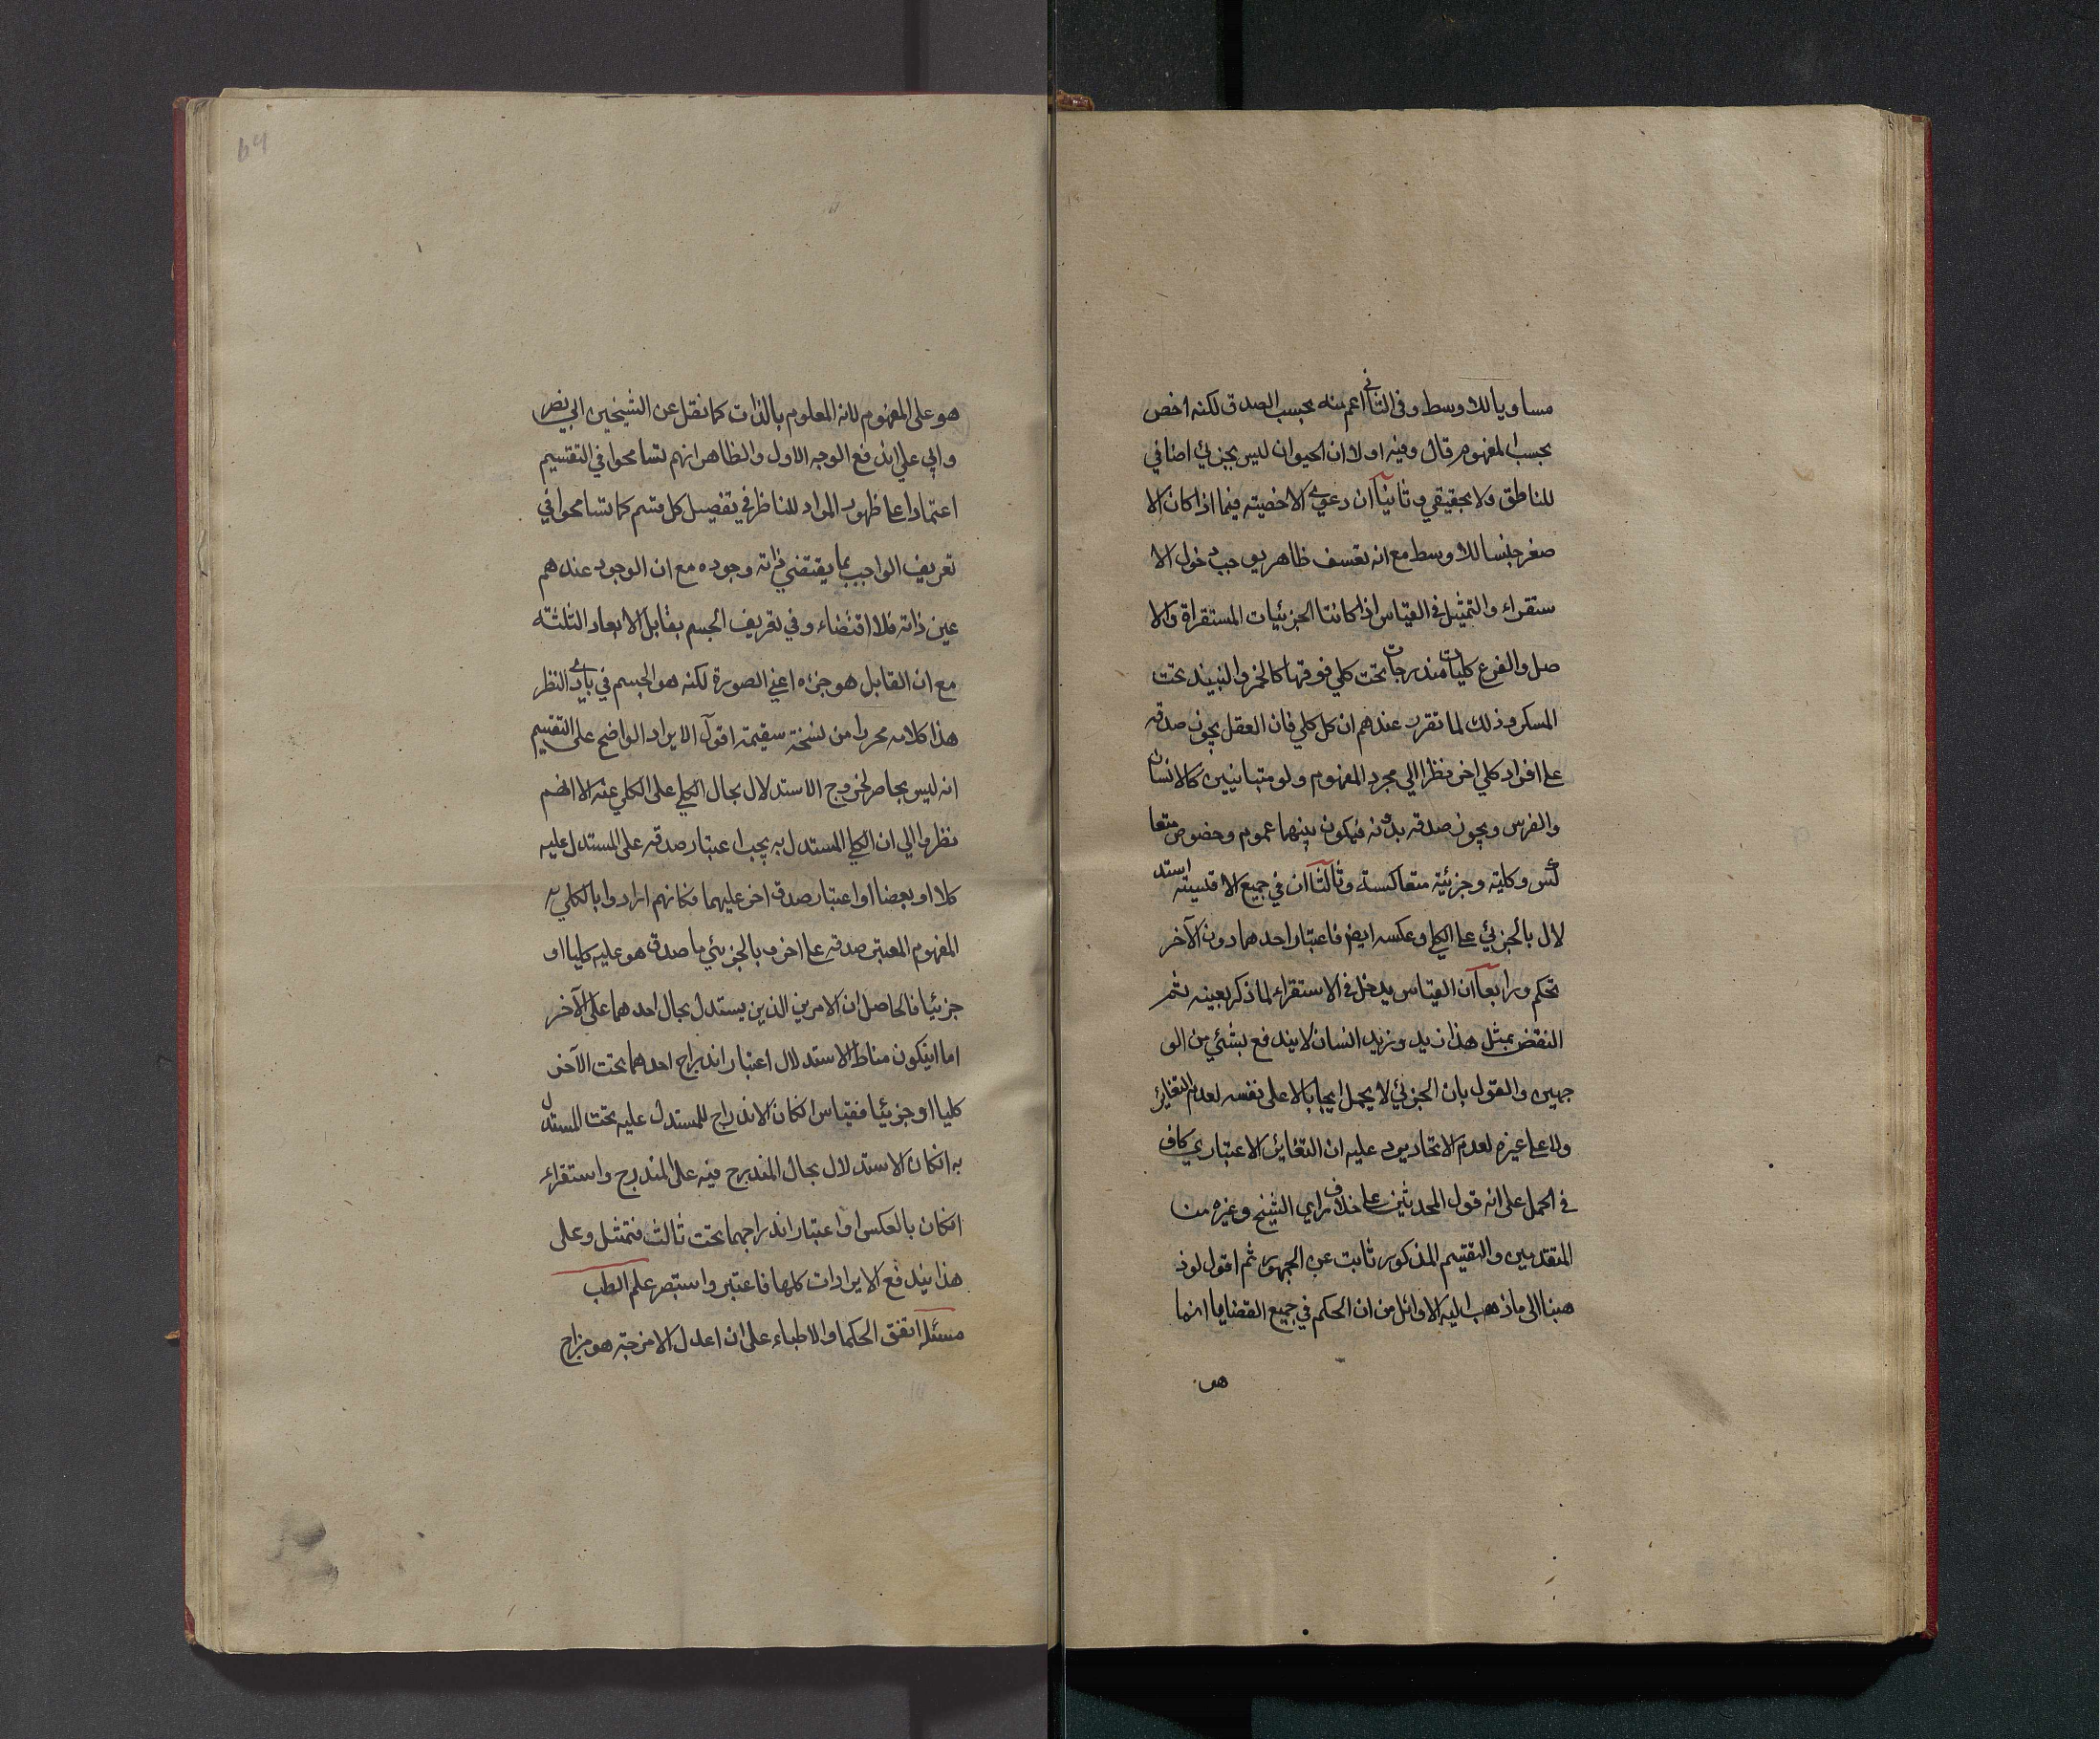 مساويا للاوسط وفي الثاني اعم منه بحسب الصدق لكنه اخص
بحسب المفهوم قال وفيه اولا ان الحيوان ليس بجزئي اضافي
للناطق ولا بحقيقي وثانيا ان دعوي الاخصية فيما اذا كان الا
صغر جنسا للاوسط مع انه تعسف ظاهر يوجب دخول الا
ستقراء والتمثيل في القياس اذا كانتا الجزئيات المستقراة والا
صل والفرع كليات مندرجات تحت كلي فوقها كالخمر والنبيذ تحت
المسكر وذلك لما تقرر عندهم ان كل كلي فان العقل يجوز صدقه
على افراد كلي اخر نظرا الي مجرد المفهوم ولو متباينين كالانسان
والفرس ويجوز صدقه بدونه فيكون بينهما عموم وخصوص متعا
كس وكلية وجزئية متعاكسة وثالثا ان في جميع الاقيسة استد
لال بالجزئي على الكلي وعكسه ايض فاعتبار احدهما دون الآخر
تحكم ورابعا ان القياس يدخل في الاستقراء لما ذكر بعينه ثم
النقض بمثل هذا زيد وزيد انسان لا يندفع بشئي من الو
جهين والقول بان الجزئي لا يحمل ايجابا لا على نفسه لعدم التغاير
ولا على غيره لعدم الاتحاد يرد عليه ان التغاير الاعتباري كاف
في الحمل على انه قول المحدثين على خلاف راي الشيخ وغيره من
المتقدمين والتقسيم المذكور ثابت عن الجمهور ثم اقول لو ذ
هبنا الى ما ذهب اليه الاوائل من ان الحكم في جميع القضايا انما
هو
64
هو على المفهوم لانه المعلوم بالذات كما نقل عن الشيخين ابي نصر
وابي علي اندفع الوجه الاول والظاهر انهم تسامحوا في التقسيم
اعتمادا على ظهور المراد للناظر في تفصيل كل قسم كما تسامحوا في
تعريف الواجب بما يقتضي ذاته وجوده مع ان الوجود عندهم
عين ذاته فلا اقتضاء وفي تعريف الجسم بقابل الابعاد الثلثة
مع ان القابل هو جزءه اعني الصورة لكنه هو الجسم في بادي النظر
هذا كلامه محررا من نسخة سقيمة اقول الايراد الواضح على التقسيم
انه ليس بحاصر لخروج الاستدلال بحال الكلي على الكلي عنه الا انهم
نظروا الي ان الكلي المستدل به يجب اعتبار صدقه على المستدل عليه
كلا او بعضا او اعتبار صدق اخر عليهما فكانهم ارادوا بالكلي
المفهوم المعتبر صدقه على اخر وبالجزئي ما صدق هو عليه كليا او
جزئيا فالحاصل ان الامرين الذين يستدل بحال احدهما على الآخر
اما ان يكون مناط الاستدلال اعتبار اندراج احدهما تحت الآخر
كليا او جزئيا فقياس انكان الاندراج للمستدل عليه تحت المستدل
به انكان الاستدلال بحال المندرج فيه على المندرج واستقراء
انكان بالعكس او اعتبار اندراجهما تحت ثالث فتمثيل وعلى
هذا يندفع الايرادات كلها فاعتبر واستبصر علم الطب
مسئلة اتفق الحكما والاطباء على ان اعدل الامزجة هو مزاج